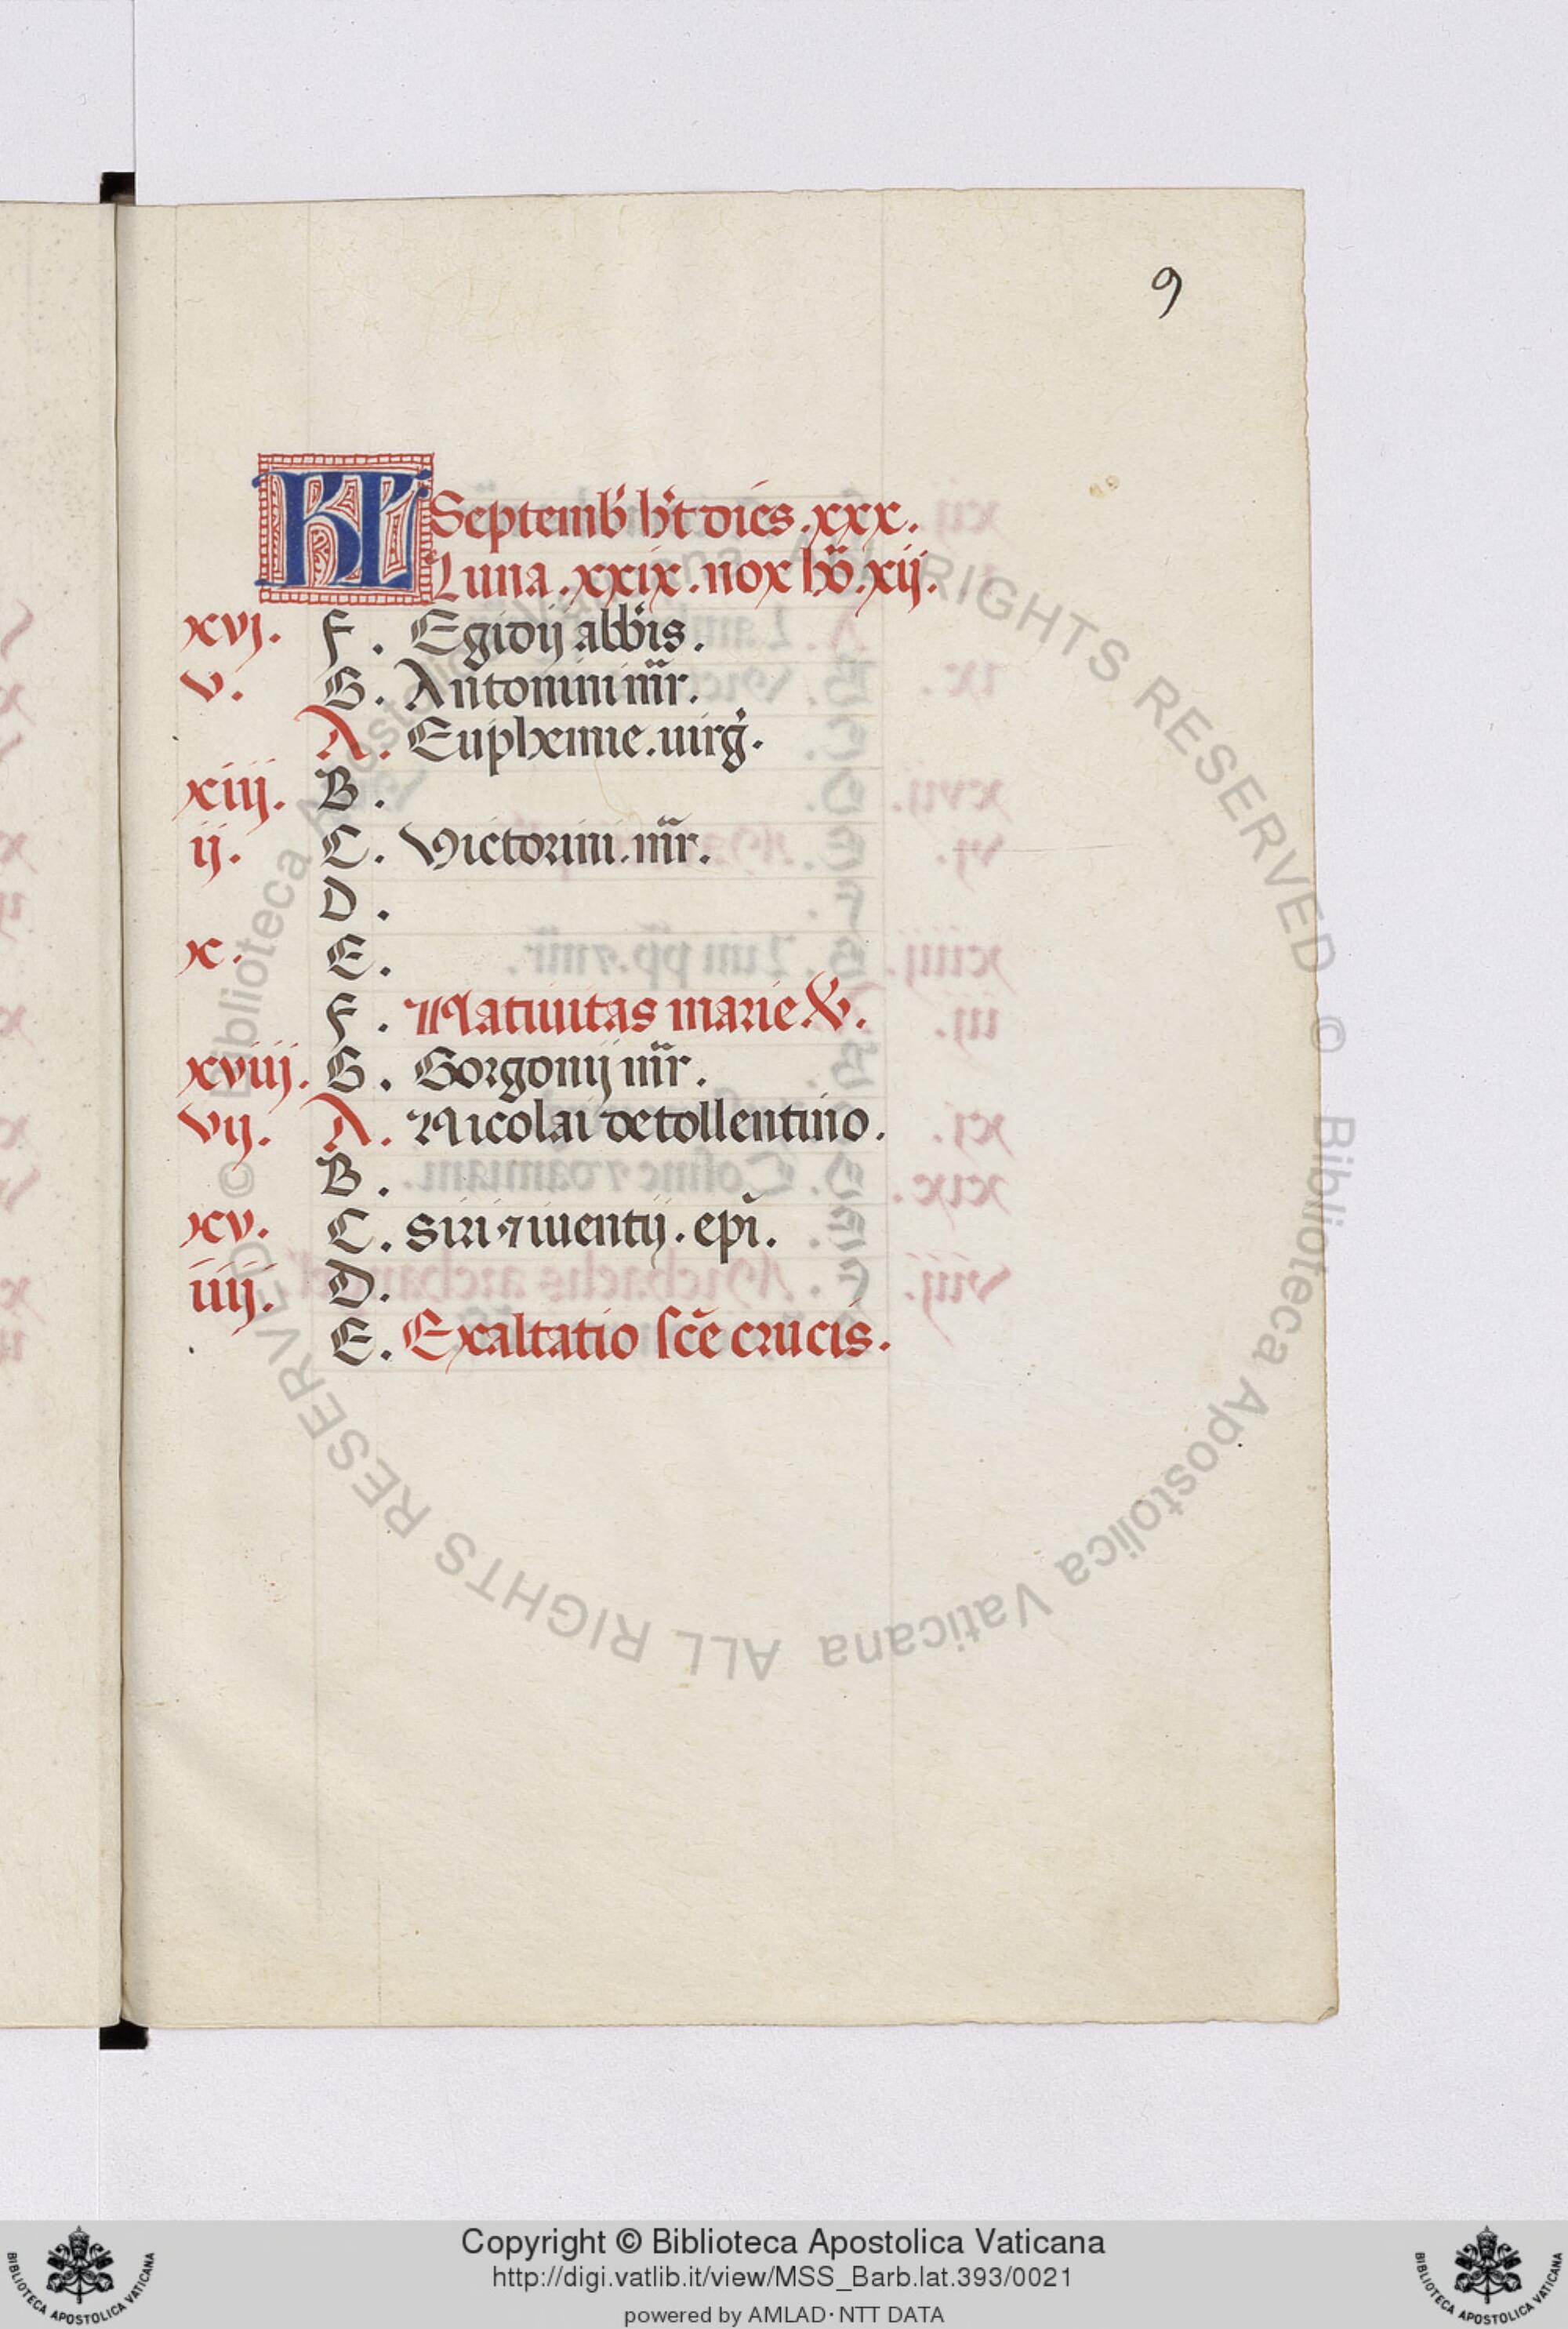 9
KL Septemb' h't dies .xxx.
Luna .xxix. nox ho̅. xij.
xvj. F. Egidij abb'is.
v. G. Antonini m̅r.
A. Euphemie. uirg̅.
xiij. B.
ij. C. Victorini. m̅r.
D.
x. E.
F. Natiuitas marie V̅.
xviij. G. Gorgonij m̅r.
vij. A. Nicolai de tollentino.
B.
xv. C. siri ⁊ iuentij. ep̅i.
iiij. D.
E. Exaltatio sc̅e crucis.
© Biblioteca Apostolica Vaticana ALL RIGHTS RESERVED © Biblioteca Apostolica Vaticana ALL RIGHTS RESERVED
Copyright © Biblioteca Apostolica Vaticana
http://digi.vatlib.it/view/MSS_Barb.lat.393/0021
powered by AMLAD·NTT DATA
BIBLIOTECA APOSTOLICA VATICANA
BIBLIOTECA APOSTOLICA VATICANA